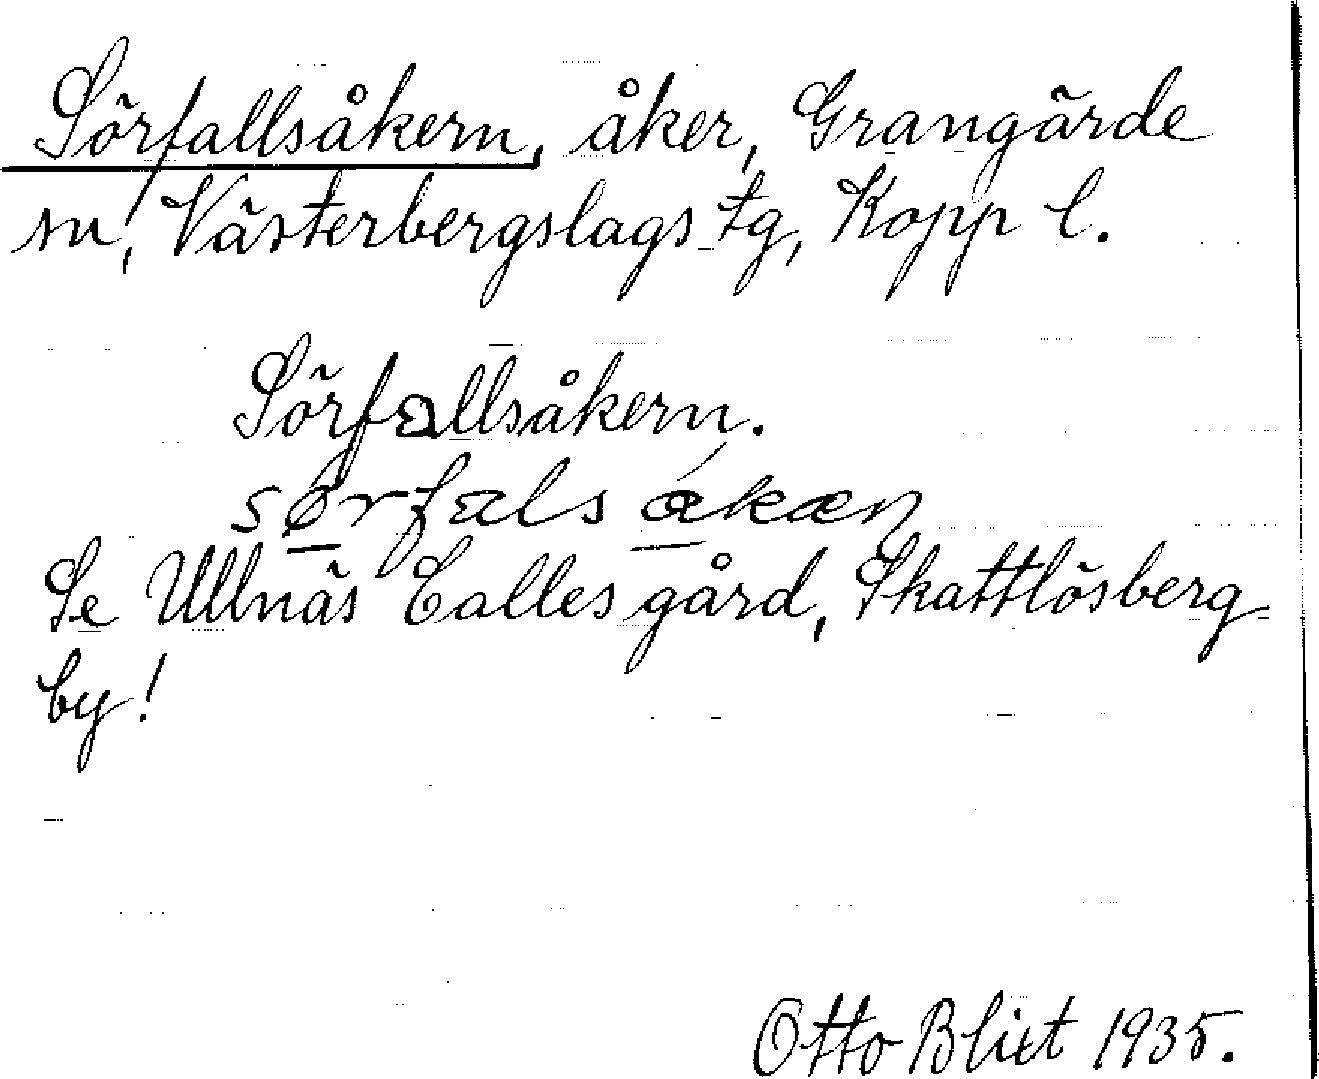 Sörfallsåkern, åker, Grangärde
sn, Västerbergslags tg, Kopp l.
Sörfallsåkern.
sørfals åkæn
Se Ullnäs Calles gård, Skattlösberg
by!
Otto Blixt 1935.